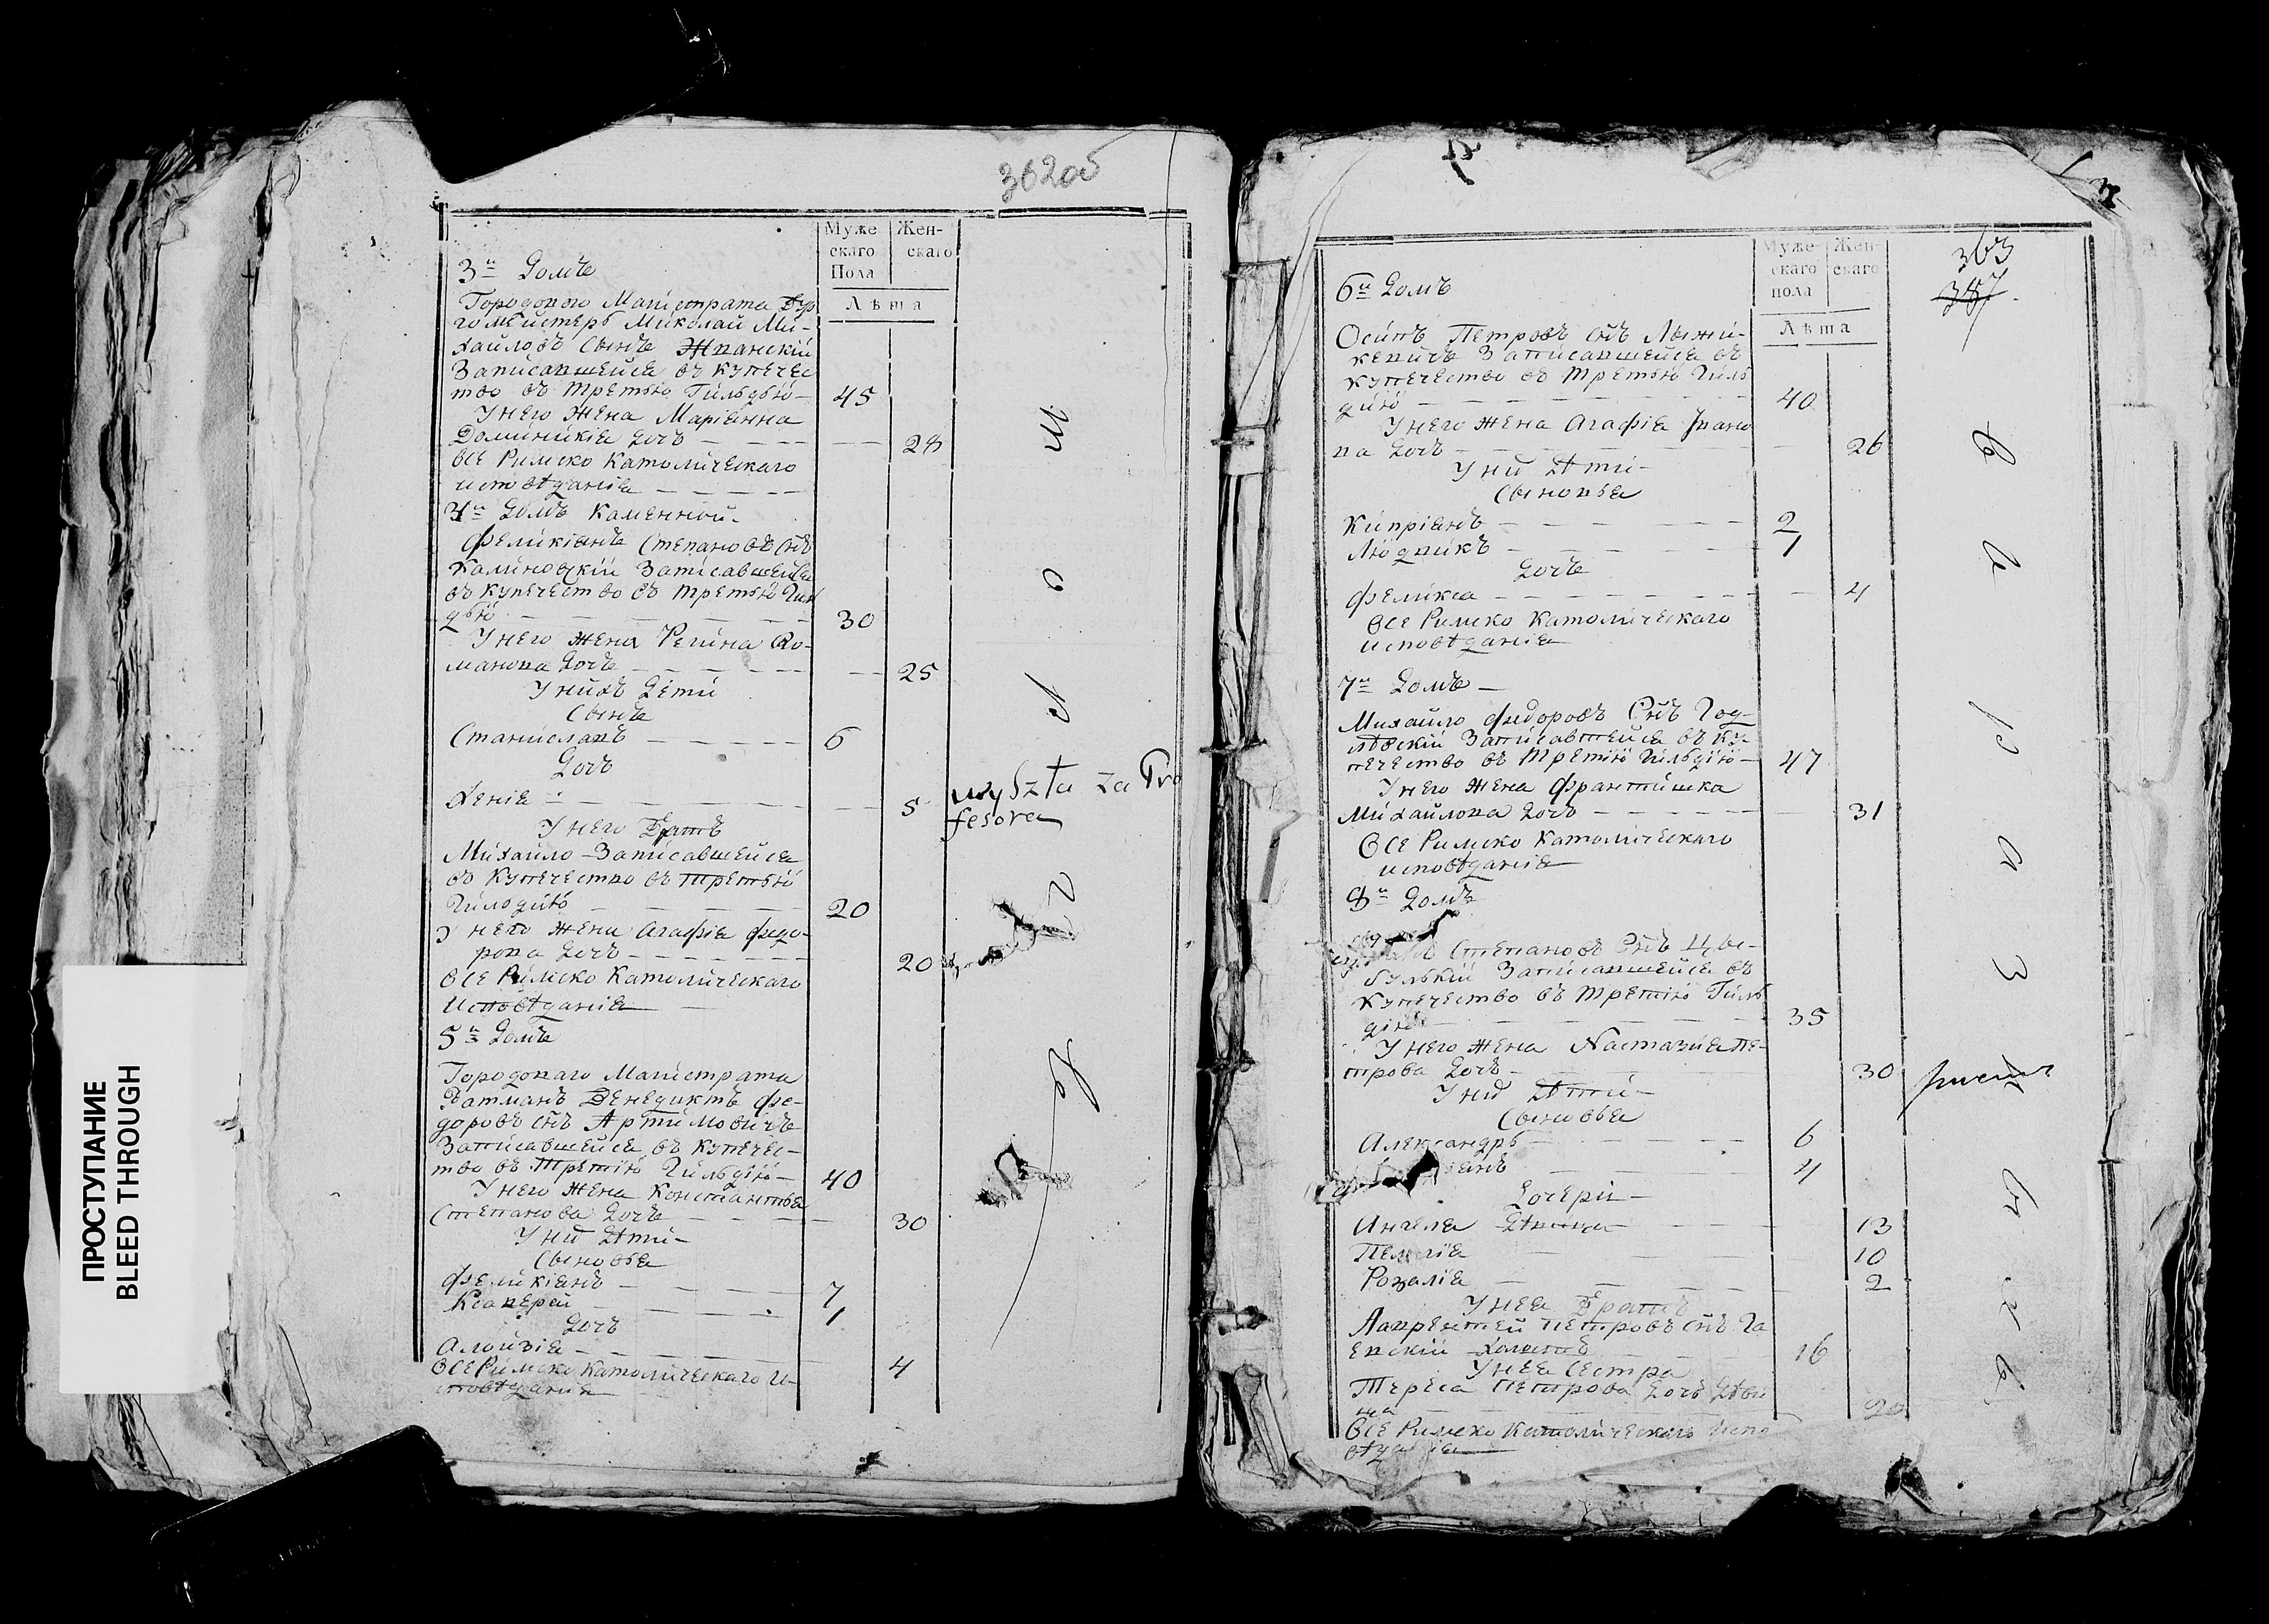 ПРОСТУПАНИЕ
BLEED THROUGH
362об
Муже
скаго
Пола
Жен-
скаго
Лѣта
3й Домъ
Городоваго Магистрата Бур
гомейстеръ Миколай Ми-
хайловъ Сынъ
Записавшейся въ купечес
тво въ третью Гильдью 45
У него жена Маріанна
Доминикія дочь 28
Все Римско Католическаго
исповѣданія
4й Домъ Каменной
Феликіанъ Степановъ снъ
Калиновскій Записавшейся
въ купечество въ третью Гил
дью 30
У него жена Регина Ро-
манова дочь 25
У нихъ Дети
Сынъ
Станиславъ 6
Дочь
Ксенія 5
wyszła za Pro
fesora
У него Братъ
Михайло Записавшейся
въ купечество въ третью
Гильдию 20
У него жена Агафія Федо-
рова дочь 20
Все Римско Католическаго
Исповѣданія
5й Домъ
Городоваго Магистрата
Ратманъ Бенедиктъ Фе-
доровъ снъ Артимовичъ
Записавшейся въ купечес-
тво въ третію Гильдію 40
У него жена Константія
Степанова дочь 30
У них Дѣти
Сыновья
Феликіанъ 7
Ксаверей 1
Дочь
Алоизія 4
Все Римско Католическаго и-
сповѣданія
Муже-
скаго
пола
Жен-
скаго
Лѣта
363
357
6й Домъ
Осипъ Петровъ снъ
Записавшейся въ
купечество въ третью Гиль
дію 40
У него жена Агафія Ивано
ва дочь 26
У них Дѣти
Сыновья
Кипріанъ 2
Людвикъ 1
Дочь
Феликса 4
Все Римско Католическаго
исповѣданія
7й Домъ
Михайло Федоровъ Снъ Год-
левскій Записавшейся въ ку-
печество въ третію Гильдію 47
У него жена Францишка
Михайлова дочь 31
Все Римско Католическаго
исповѣданія
8й Домъ
Степановъ Снъ Цы-
бульскій Записавшейся въ
купечество въ третію Гиль
дію 35
У него жена Настазія Пе-
трова дочь 30
У них Дѣти
Сыновья
Александръ 6
4
Дочери
Ангеля Дѣвица 13
Пелагія 10
Розалія 2
У нея Братъ
Лаврентей Петровъ снъ Га
евскій Холостъ 16
У нея Сестра
Тереса Петрова дочь Дѣви
ца 20
Все Римско Католическаго испо
вѣданія